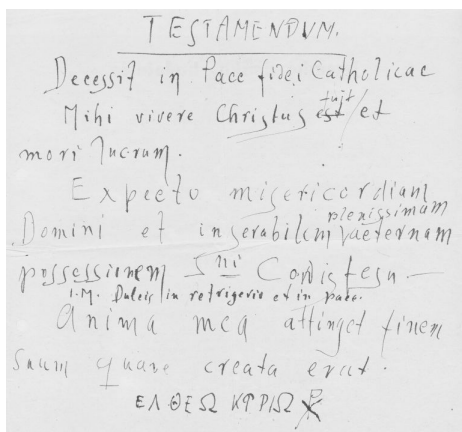 TESTAMENDUM.
Decessit in Pace fidei Catholicae
Mihi vivere Christus est fuit et
mori lucrum.
Expecto misericordiam
Domini et plenissimam aeternam
possessionem Sni Cordis Jesu —
I.M. Dulcis in refrigerio et in pace.
Anima mea attinget finem
suum quare creata erat.
ΕΛΘΕ Ω ΚΥΡΙΩ